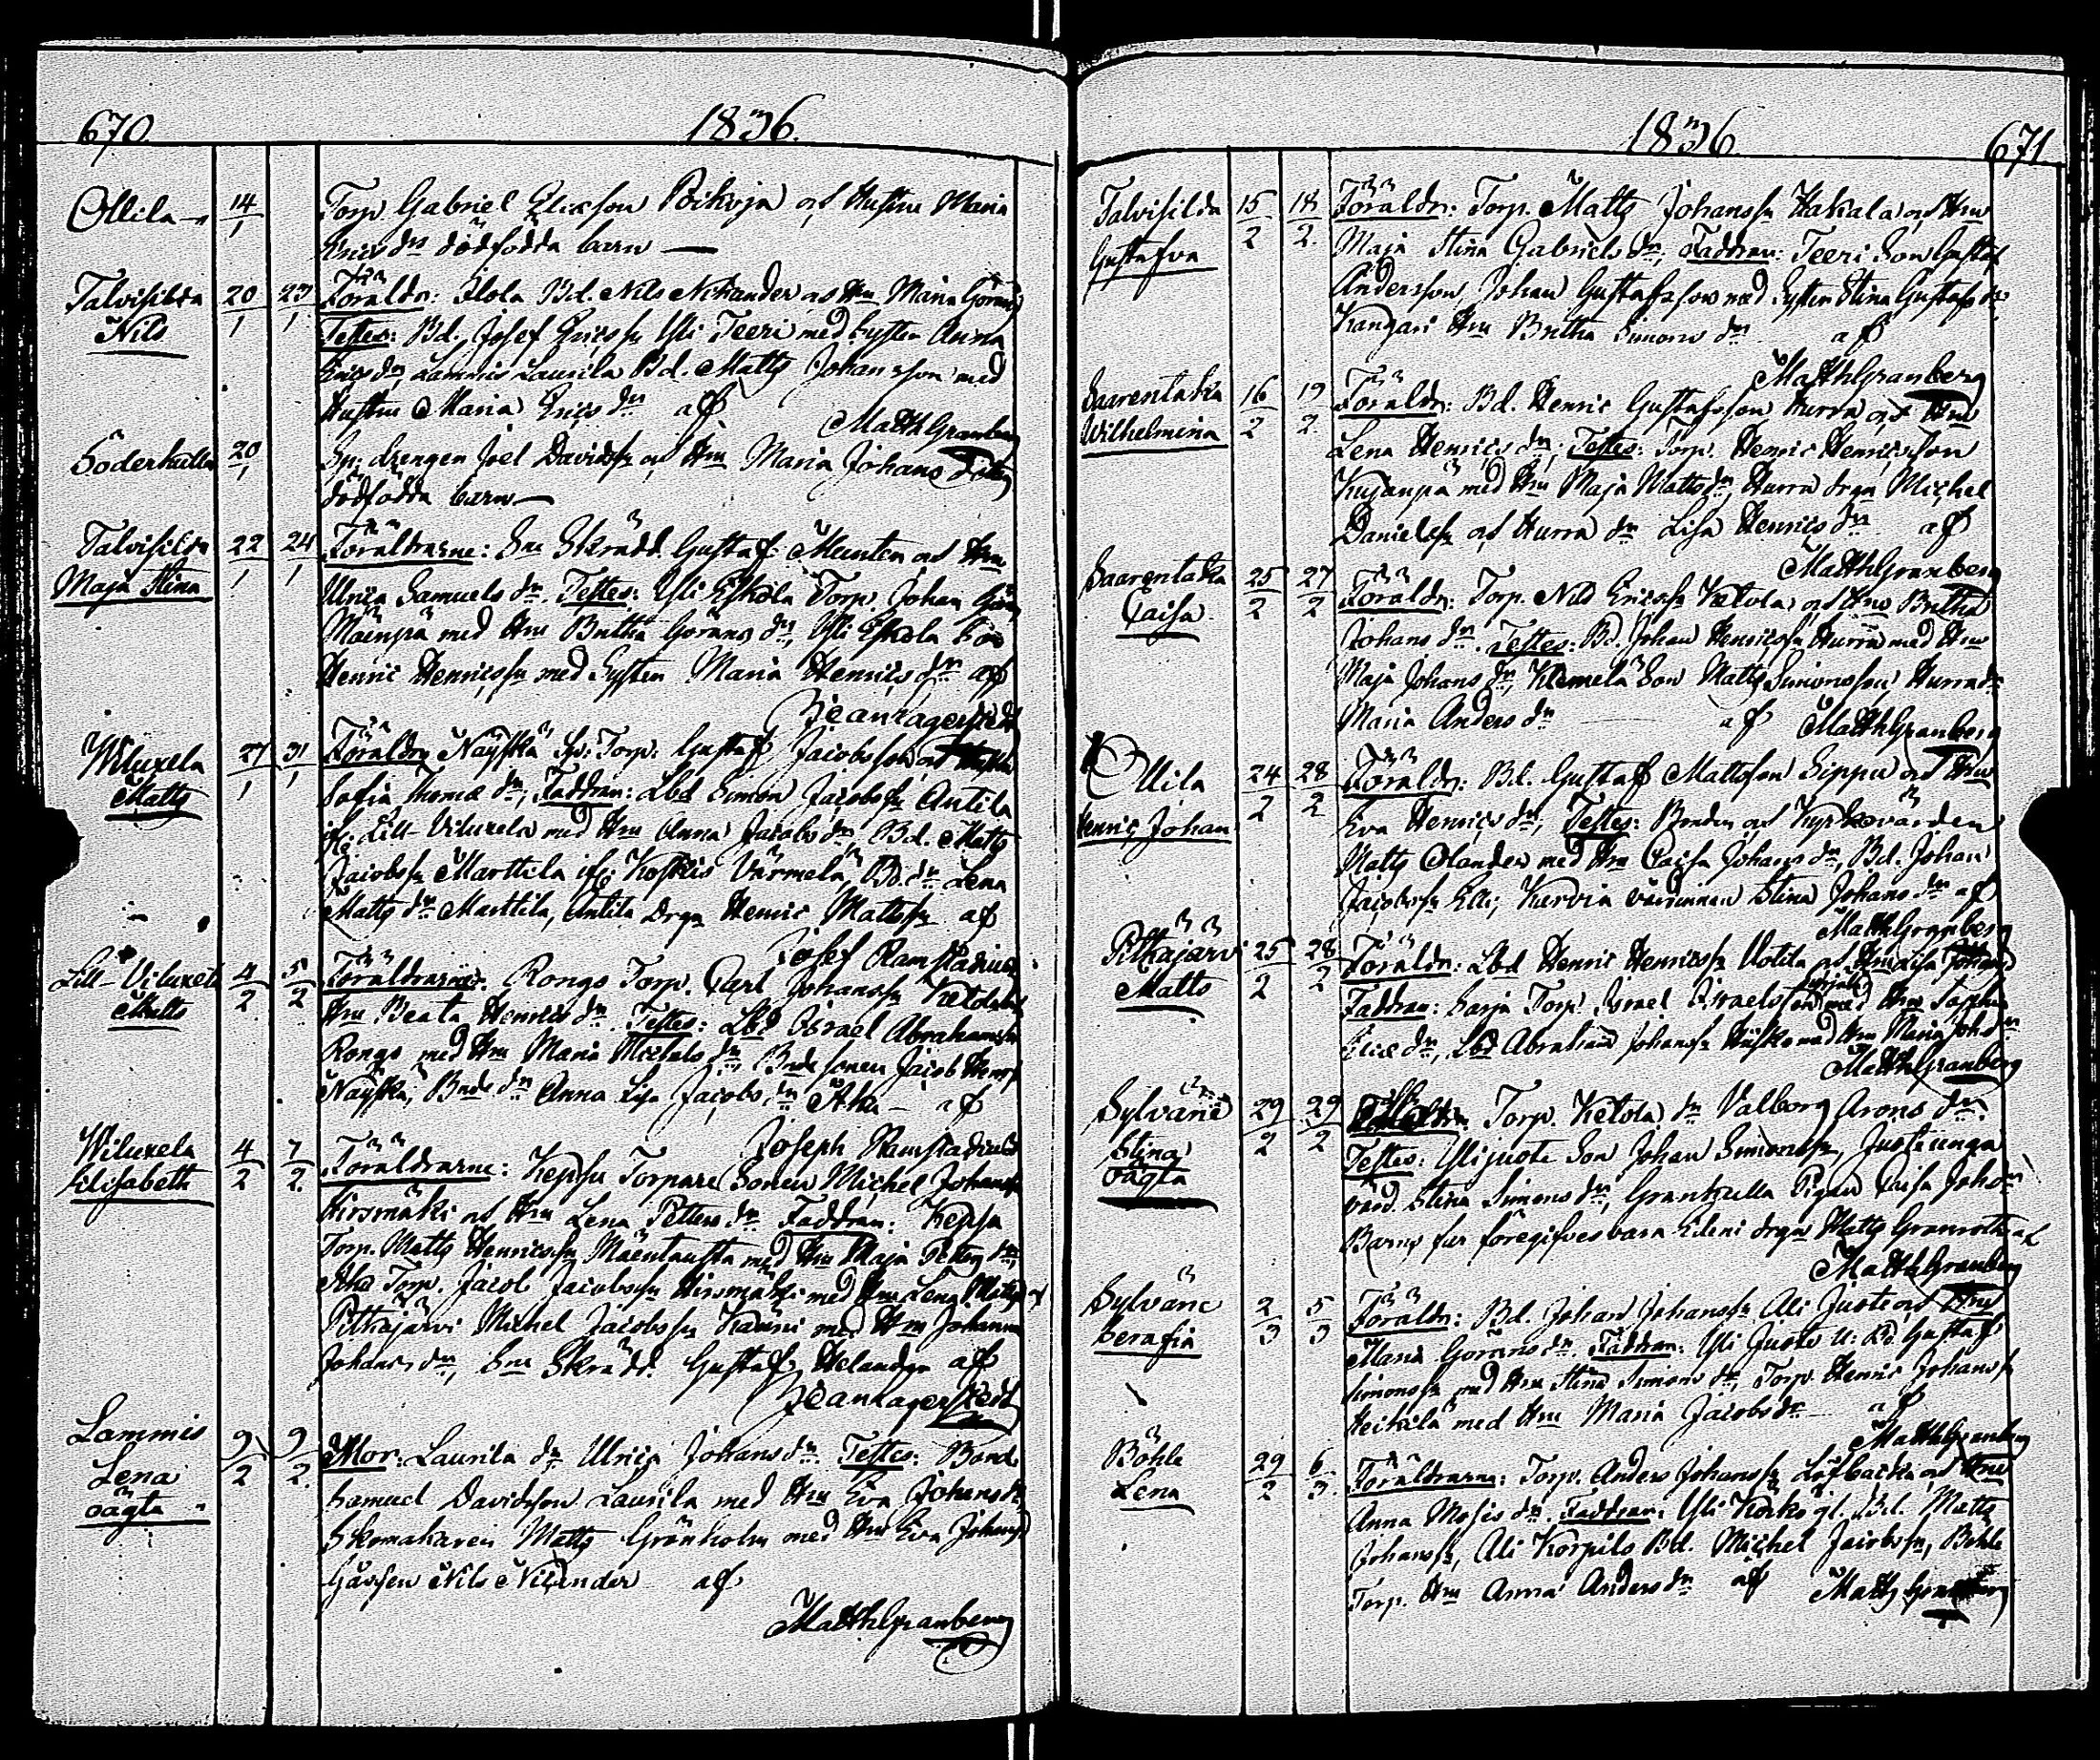 670. 1836.
Ollila 14/1 Torp. Gabriel Ericsson Poikoja och Hustru Maria
Erics dr dödfödda barn —
Talvisilda 20/1 23/1 Föräldr: Ilola Bd. Nils Nikander och Hu Maria Görans
Nils Testes: Bd. Josef Ericss Yli Teeri med Syster Anna
Erics dr, Lammis Laurila Bd. Matts Johansson med
Hustru Maria Erics dr af
MatthGranberg
Söderkulla 20/1 Sp: drengen Joel Davidss och Hu Maria Johans
dödfödda barn —
Talvisilda 22/1 24/1 Föräldrarne: Sn Skrädd. Gustaf Meinten och Hu
Maja Stina Ulrica Samuels dr. Testes: Yli Eskola Torp. Johan
Mäenpä med Hu Britha Görans dr, Yli Eskola Son
Henric Henricss med Syster Maria Henrics dr af
Wiluxela 27/1 31/1 Föräldr Näyskä Sp: Torp: Gustaf Jacobsson och
Matts Sofia Thomæ dr; Faddrar: Lbd Simon Jacobss Antila
ifr. Lill-Viluxela med Hu Anna Jacobs dr, Bd. Matts
Jacobss Marttila ifr. Koskis Värmelä, Bd. dr Lena
Matts dr Marttila, Antila drgn Henric Mattss af
Josef Ramstadius
Lill-Viluxela 4/2 5/2 Föräldrarne. Rongo Torp. Carl Johanss Ketola
Matts Hu Beata Henrics dr. Testes: Lbd Israel Abrahamss
Rongo med Hu Maria Michels dr Bnde sonen Jacob
Näyskä, Bnde dr Anna Lisa Jacobs dr Aka — af
Joseph Ramstadius
Wiluxela 4/2 7/2 Föräldrarne: Keppu Torpare Sonen Michel Johanss
Elisabeth Hirsmäki och Hu Lena Petters dr Faddrar: Keppu
Torp. Matts Henricss Mäentausta med Hu Maja Petters dr,
Aka Torp. Jacob Jacobss Hirsmäki med Hu Lena Matts
Pitkäjärvi Michel Jacobss med Hu Johanna
Johans dr, Sn Skrädd. Gustaf Helander af
Lammis 9/2 9/2 Mor: Laurila dr Ulrica Johans dr. Testes: Bond.
Lena Samuel Davidsson Laurila med Hu Eva Johans dr
oägta Skomakaren Matts Grönholm med Hu Eva Johans
Gåssen Nils Nicander af
MatthGranberg
1836. 671
Talvisilda 15/2 18/2 Föräldr: Torp. Matts Johanss Hakala och Hu
Gustafva Maja Stina Gabriels dr; Faddrar: Teeri Son Gustaf
Andersson, Johan Gustafsson med Syster Stina Gustafs dr,
Kangari Hu Britha Simons dr af
MatthGranberg
Saarentaka 16/2 19/2 Föräldr: Bd. Henric Gustafsson Hurra och Hu
Wilhelmina Lena Henrics dr; Testes: Torp. Henric Henricsson
Kujanpä med Hu Maja Matts dr, Hurra drgn Michel
Danielss och Hurra dr Lisa Henrics dr af
MatthGranberg
Saarentaka 25/2 27/2 Föräldr: Torp. Nils Ericss Ketola och Hu Britha
Caisa Johans dr. Testes: Bd. Johan Henricss Hurra med Hu
Maja Johans dr, Klemelä Son Matts Simonsson, Hurra dr
Maria Anders dr af MatthGranberg
Ollila 24/2 28/2 Föräldr: Bd. Gustaf Mattsson Sippu och Hu
Henric Johan Eva Henrics dr; Testes: Bonden och Kyrkovärden
Matts Olander med Hu Caisa Johans dr, Bd. Johan
Jacobss Elli, Karvia värdinnan Stina Johans dr af
MatthGranberg
Pitkäjärvi 25/2 28/2 Föräldr: Lbd Henric Henricss Uotila och Hu Lisa
Matts Faddrar: Sarja Torp. Israel Israelsson med Hu Sophia
Eric dr, Lbd Abraham Johanss med Hu Maria Joh dr
MatthGranberg
Sylvänä 29/2 29/2 Torp. Ketola dr Valborg Arons dr.
Stina Testes: Yli juote Son Johan Simonss, Juote unga
oägta värd. Stina Simons dr, Grantzulla Pigan Caisa Joh dr
Barns far föregifves vara Edeni drgn Matts Granroth af
MatthGranberg
Sylväne 2/3 5/3 Föräldr: Bd. Johan Johanss Ali Juote och Hu
Serafia Maria Görans dr. Faddrar: Yli Juote u: Bd. Gustaf
Simonss med Hu Stina Simons dr, Torp. Henric Johanss
Heikilä med Hu Maria Jacobs dr af
MatthGranberg
Böhle 29/2 6/3 Föräldrarne: Torp. Anders Johanss Löfbacka och Hu
Lena Anna Mosis dr. Faddrar: Yli Körkö gl. Bd. Matts
Johanss, Ali Korpilo Bd. Michel Jacobss, Böhle
Torp. Hu Anna Anders dr af Matth Granberg